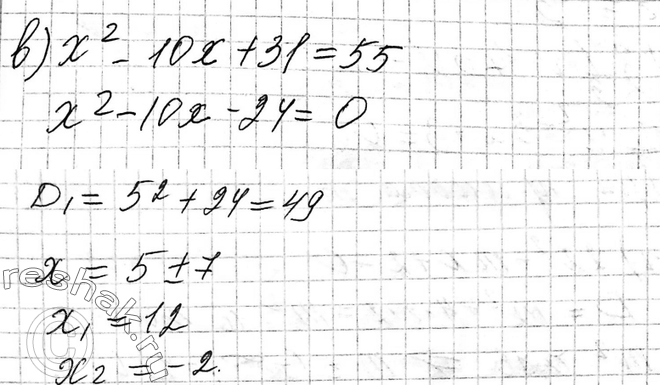 в) x² - 10x + 31 = 55
x² - 10x - 24 = 0
D₁ = 5² + 24 = 49
x = 5 ± 7
x₁ = 12
x₂ = -2.
reshak.ru
©